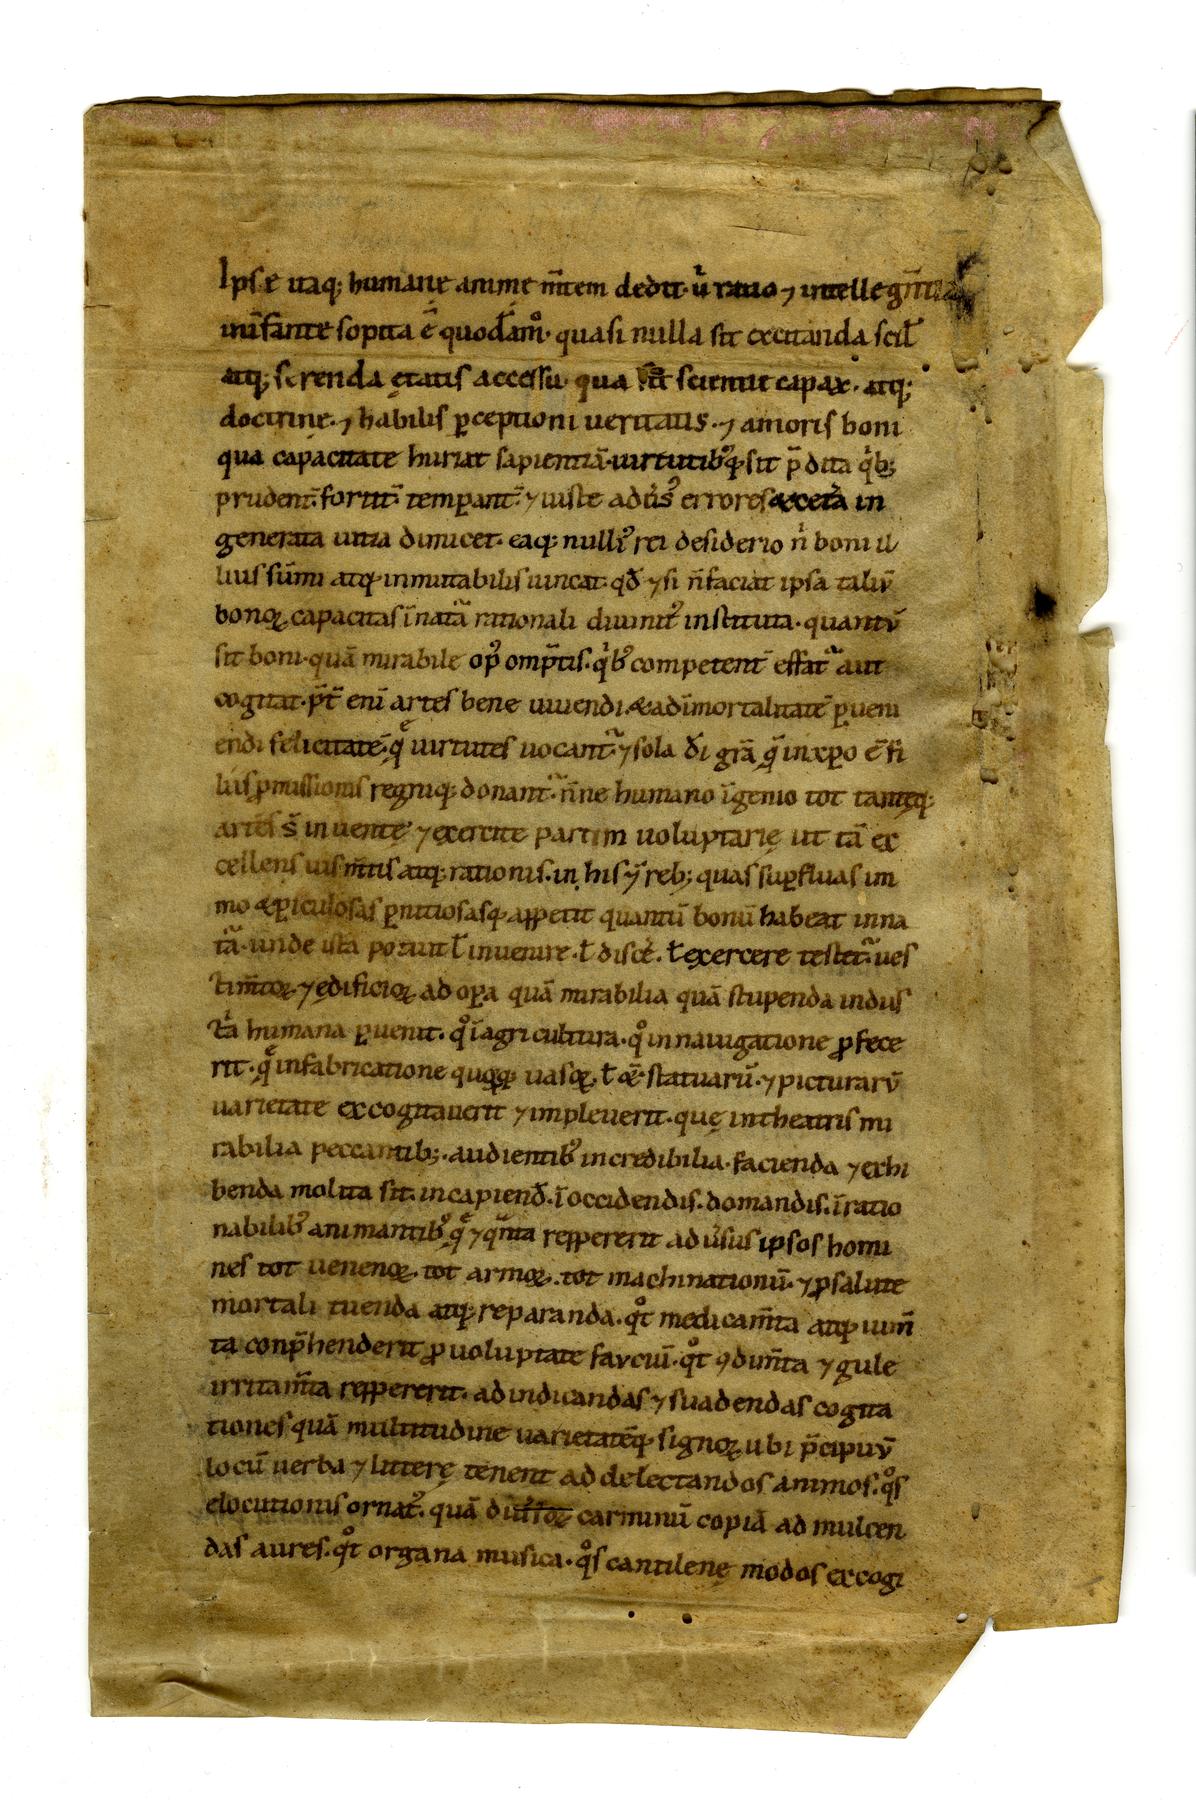 Ipse itaq; humane anime m̄tem dedit· u̇ ratio ⁊ intellegn̄tia
inīfante sopita ē quodāmͦ· quasi nulla sit excitanda scił
atq; serenda ętatis accessu· qua sit scientie capax· atq;
doctrinę· ⁊ habilis ꝑceptioni ueritatis·⁊ amoris boni
qua capacitate huriat sapientiā·uirtutibꝰq; sit p̄dita qͥb;
prudent̄·fortit̄· temꝑant̄·⁊ iuste adusꝰ errores & cetᷓa in
generata uitia dimicet· eaq; nulliꝰ rei desiderio nͥ boni il
lius sūmi atq; inmutabilis uincat· qđ ⁊ si n̄ faciat ipsa taliū
bonoꝝ capacitas ī natᷓa rationali diuinitꝰ instituta· quantū
sit boni·quā mirabile opꝰ omp̄tis·qͥbꝰ competent̄ effatᷓ aut
cogitat·p̄t̄ enī artes bene uiuendi·& adīmortalitatē ꝑueni
endi felicitatē· quę uirtutes uocantᷓ·⁊ sola dī grā quę in xp̄o ē fi
liis ꝓmissionis regniq; donantᷓ·n̄ne humano īgenio tot tantęq;
artes s̄ inuentę ⁊ exercite partim uoluptarię ut tā ex
cellens uis m̄tis atq; rationis·in his &̄ reb; quas suꝑfluas im
mo & ꝑiculosas ꝑnitiosasq; appetit quantū bonū habeat in na
tᷓa·unde ista potuit ł inuenire·ł disceͬ·ł exercere testetᷓ ues
tim̄toꝝ ⁊ ędificioꝝ ad oꝑa quā mirabilia quā stupenda indus
tͥa humana ꝑuenit· qͦ ī agricultura·qͦ in nauigatione ꝓfece
rit·quę in fabricatione quoꝝq; uasoꝝ·ł &̄·statuarū·⁊ picturarū
uarietate excogitauerit ⁊ impleuerit·quę in theatris mi
rabilia peccantib;·audientibꝰ incredibilia·facienda ⁊ exhi
benda molita sit·in capiend̄·ī occidendis·domandis·īratio
nabilibꝰ animantibꝰ quę ⁊ qᷓnta reppererit ad usus ipsos homi
nes tot uenenoꝝ·tot armoꝝ·tot machinationū·⁊ ꝓ salute
mortali tuenda atq; reparanda·qͦt medicam̄ta atq; iuum̄
ta conp̄henderit ꝓ uoluptate fauciū·qͦt ꝯdim̄ta ⁊ gule
irritam̄ta reppererit· ad indicandas ⁊ suadendas cogita
tiones quā multitudine uarietatēq; signoꝝ ubi p̄cipuū
locū uerba ⁊ litterę tenent ad delectandos animos·qͦs
elocutionis ornatꝰ· quā diuersoꝝ carminū copiā ad mulcen
das aures·qͦt organa musica·qͦs cantilenę modos excogi